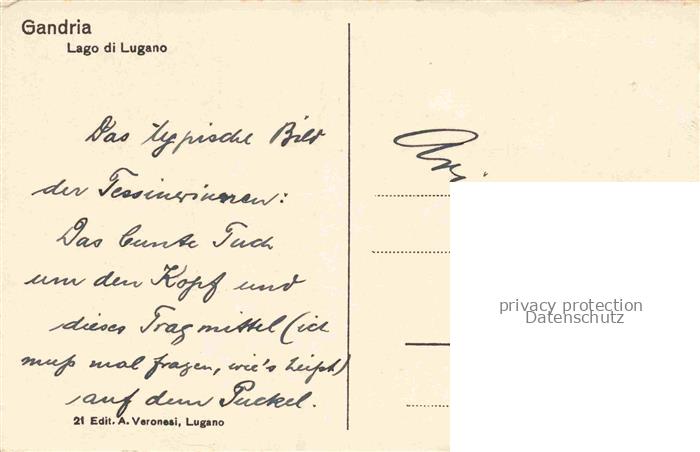 Gandria
Lago di Lugano
Das typische Bild
der Tessinerinnen:
Das bunte Tuch
um den Kopf und
dieses Tragmittel (ich
muß mal fragen, wie's heißt)
auf dem Puckel.
21 Edit. A. Veronesi, Lugano
privacy protection
Datenschutz